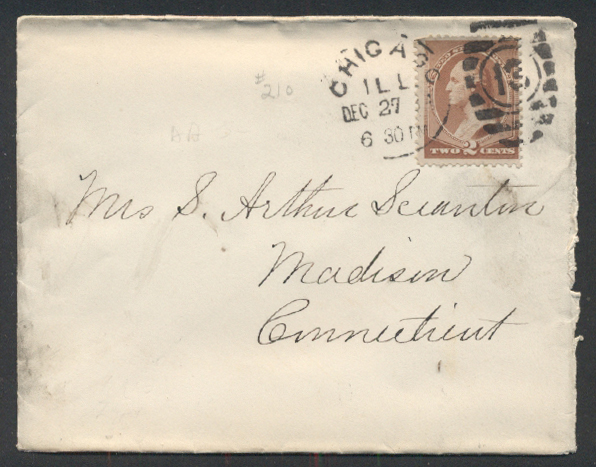 CHICAG
ILL
DEC 27
6 30 P
#210
TWO 2 CENTS
Mrs S. Arthur Scranton
Madison
Connecticut